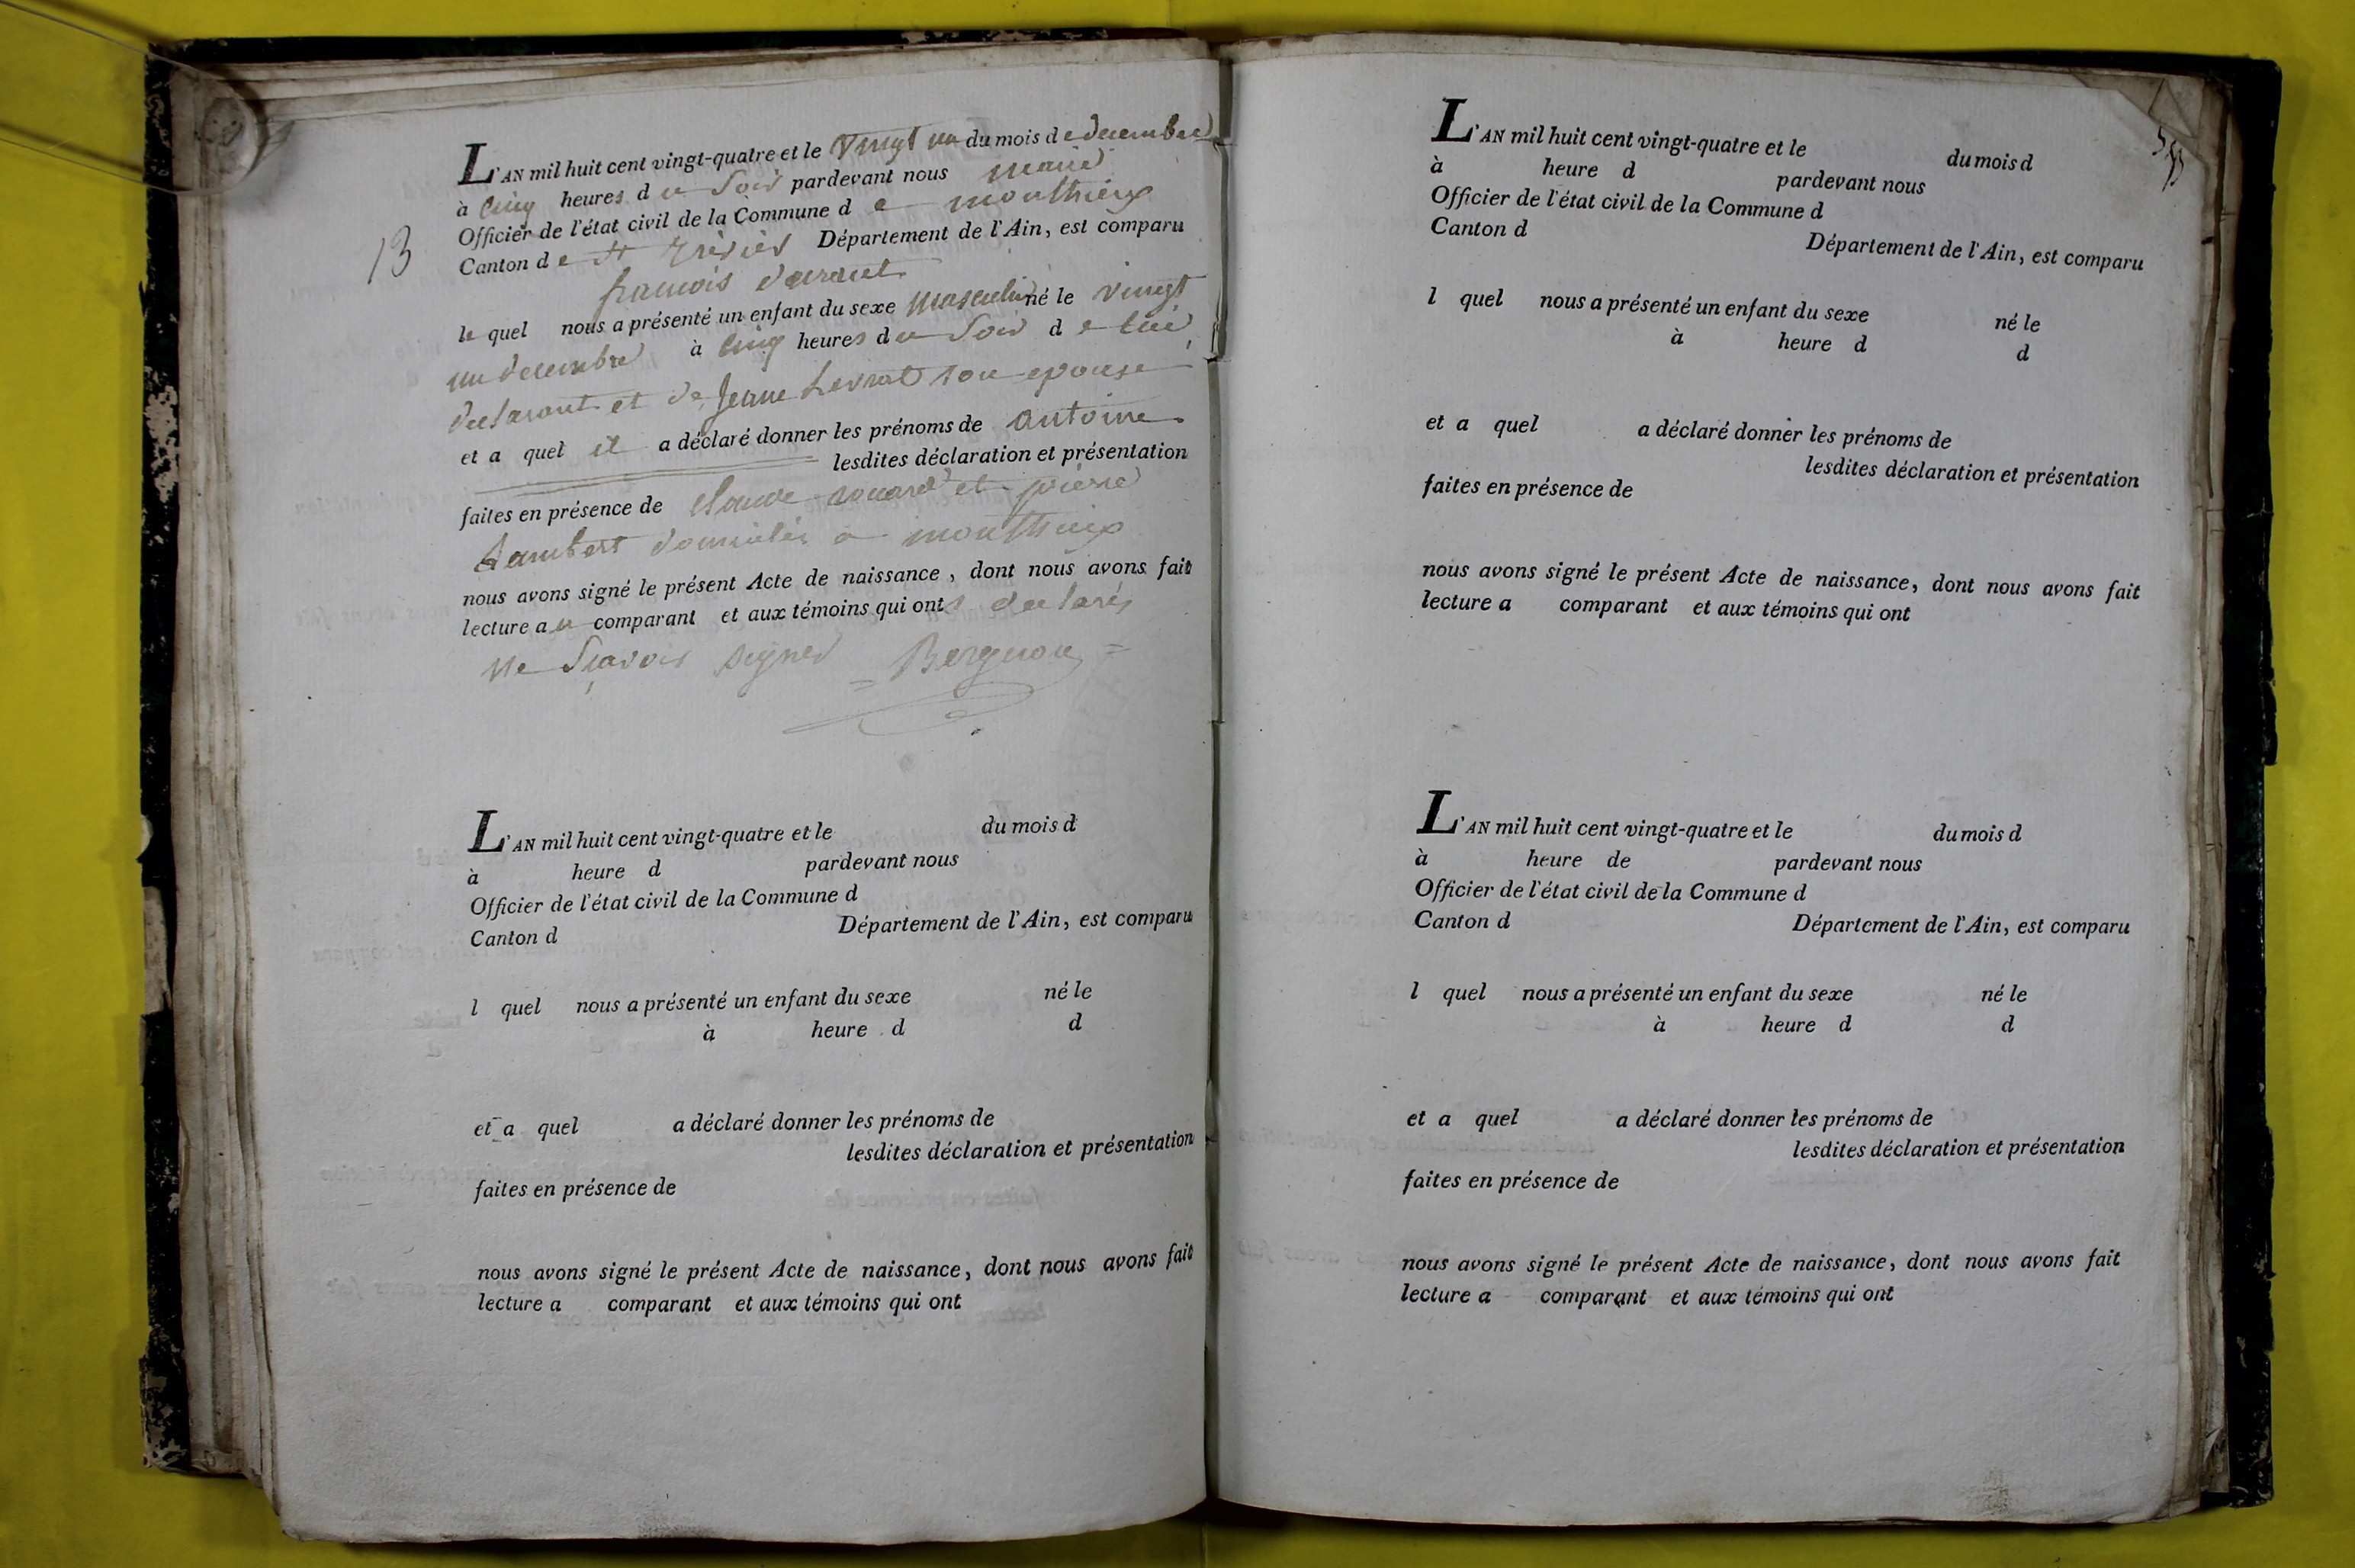 L'AN mil huit cent vingt-quatre et le vingt un du mois de decembre
à cinq heures du Soir pardevant nous maire
Officier de l'état civil de la Commune de monthieux
13
Canton de st Trivier Département de l'Ain, est comparu
francois
le quel nous a présenté un enfant du sexe masculin né le vingt
un decembre à cinq heures du Soir de lui
declarant et de Jeanne Levrat son epouse
et a quel il a déclaré donner les prénoms de antoine
lesdites déclaration et présentation
faites en présence de claude et pierre
Lambert domiciliés a monthieux
nous avons signé le présent Acte de naissance, dont nous avons fait
lecture au comparant et aux témoins qui ont declarés
ne Sçavoir signer Bergnon
L'AN mil huit cent vingt-quatre et le du mois d
à heure d pardevant nous
Officier de l'état civil de la Commune d
Canton d Département de l'Ain, est comparu
l quel nous a présenté un enfant du sexe né le
à heure d d
et a quel a déclaré donner les prénoms de
lesdites déclaration et présentation
faites en présence de
nous avons signé le présent Acte de naissance, dont nous avons fait
lecture a comparant et aux témoins qui ont
L'AN mil huit cent vingt-quatre et le du mois d
à heure d pardevant nous
Officier de l'état civil de la Commune d
Canton d Département de l'Ain, est comparu
l quel nous a présenté un enfant du sexe né le
à heure d d
et a quel a déclaré donner les prénoms de
lesdites déclaration et présentation
faites en présence de
nous avons signé le présent Acte de naissance, dont nous avons fait
lecture a comparant et aux témoins qui ont
L'AN mil huit cent vingt-quatre et le du mois d
à heure de pardevant nous
Officier de l'état civil de la Commune d
Canton d Département de l'Ain, est comparu
l quel nous a présenté un enfant du sexe né le
à heure d d
et a quel a déclaré donner les prénoms de
lesdites déclaration et présentation
faites en présence de
nous avons signé le présent Acte de naissance, dont nous avons fait
lecture a comparant et aux témoins qui ont